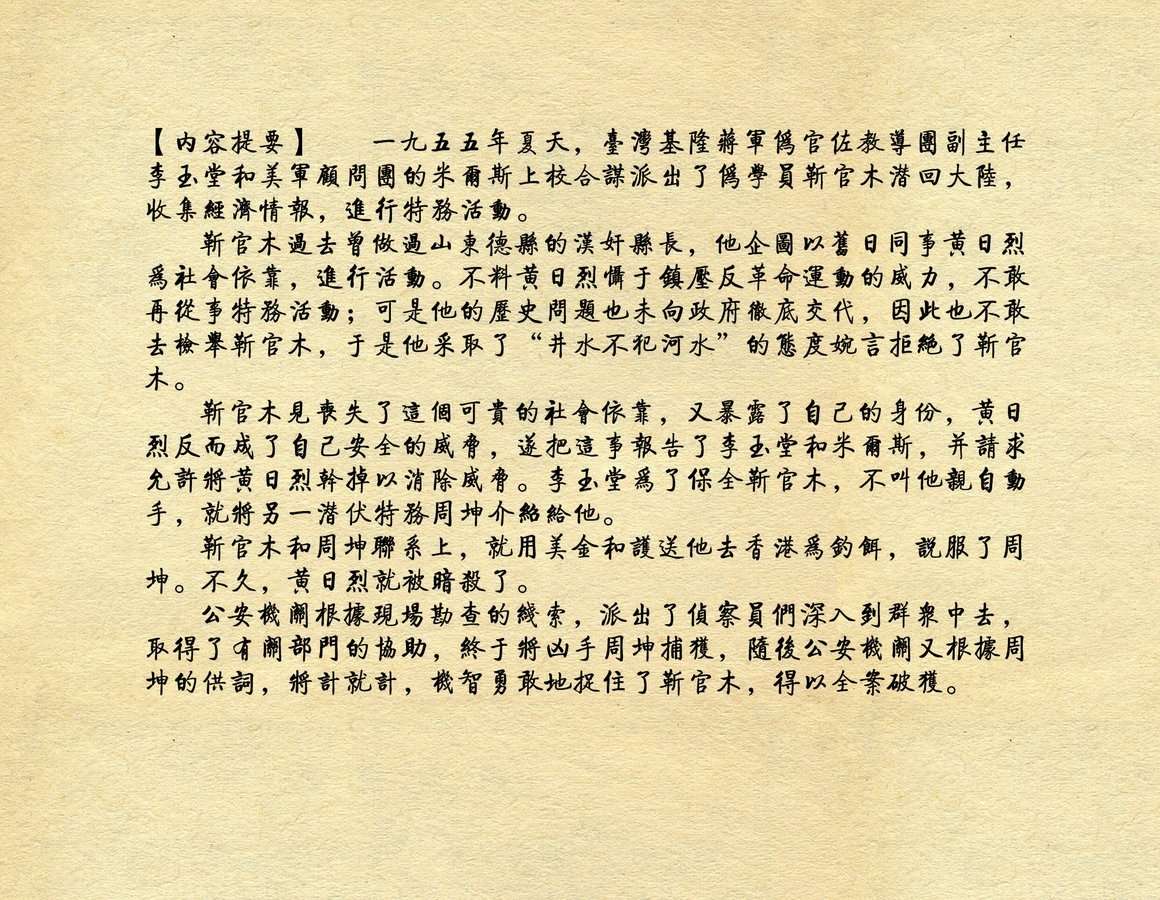 【內容提要】　　一九五五年夏天，臺灣基隆蔣軍僞官佐教導團副主任
李玉堂和美軍顧問團的米爾斯上校合謀派出了僞學員靳官木潛回大陸，
收集經濟情報，進行特務活動。
靳官木過去曾做過山東德縣的漢奸縣長，他企圖以舊日同事黃日烈
爲社會依靠，進行活動。不料黃日烈懾于鎮壓反革命運動的威力，不敢
再從事特務活動；可是他的歷史問題也未向政府徹底交代，因此也不敢
去檢舉靳官木，于是他采取了“井水不犯河水”的態度婉言拒絕了靳官
木。
靳官木見喪失了這個可貴的社會依靠，又暴露了自己的身份，黃日
烈反而成了自己安全的威脅，遂把這事報告了李玉堂和米爾斯，并請求
允許將黃日烈幹掉以消除威脅。李玉堂爲了保全靳官木，不叫他親自動
手，就將另一潛伏特務周坤介紹給他。
靳官木和周坤聯系上，就用美金和護送他去香港爲釣餌，説服了周
坤。不久，黃日烈就被暗殺了。
公安機關根據現場勘查的綫索，派出了偵察員們深入到群衆中去，
取得了有關部門的協助，終于將凶手周坤捕獲，隨後公安機關又根據周
坤的供詞，將計就計，機智勇敢地捉住了靳官木，得以全案破獲。